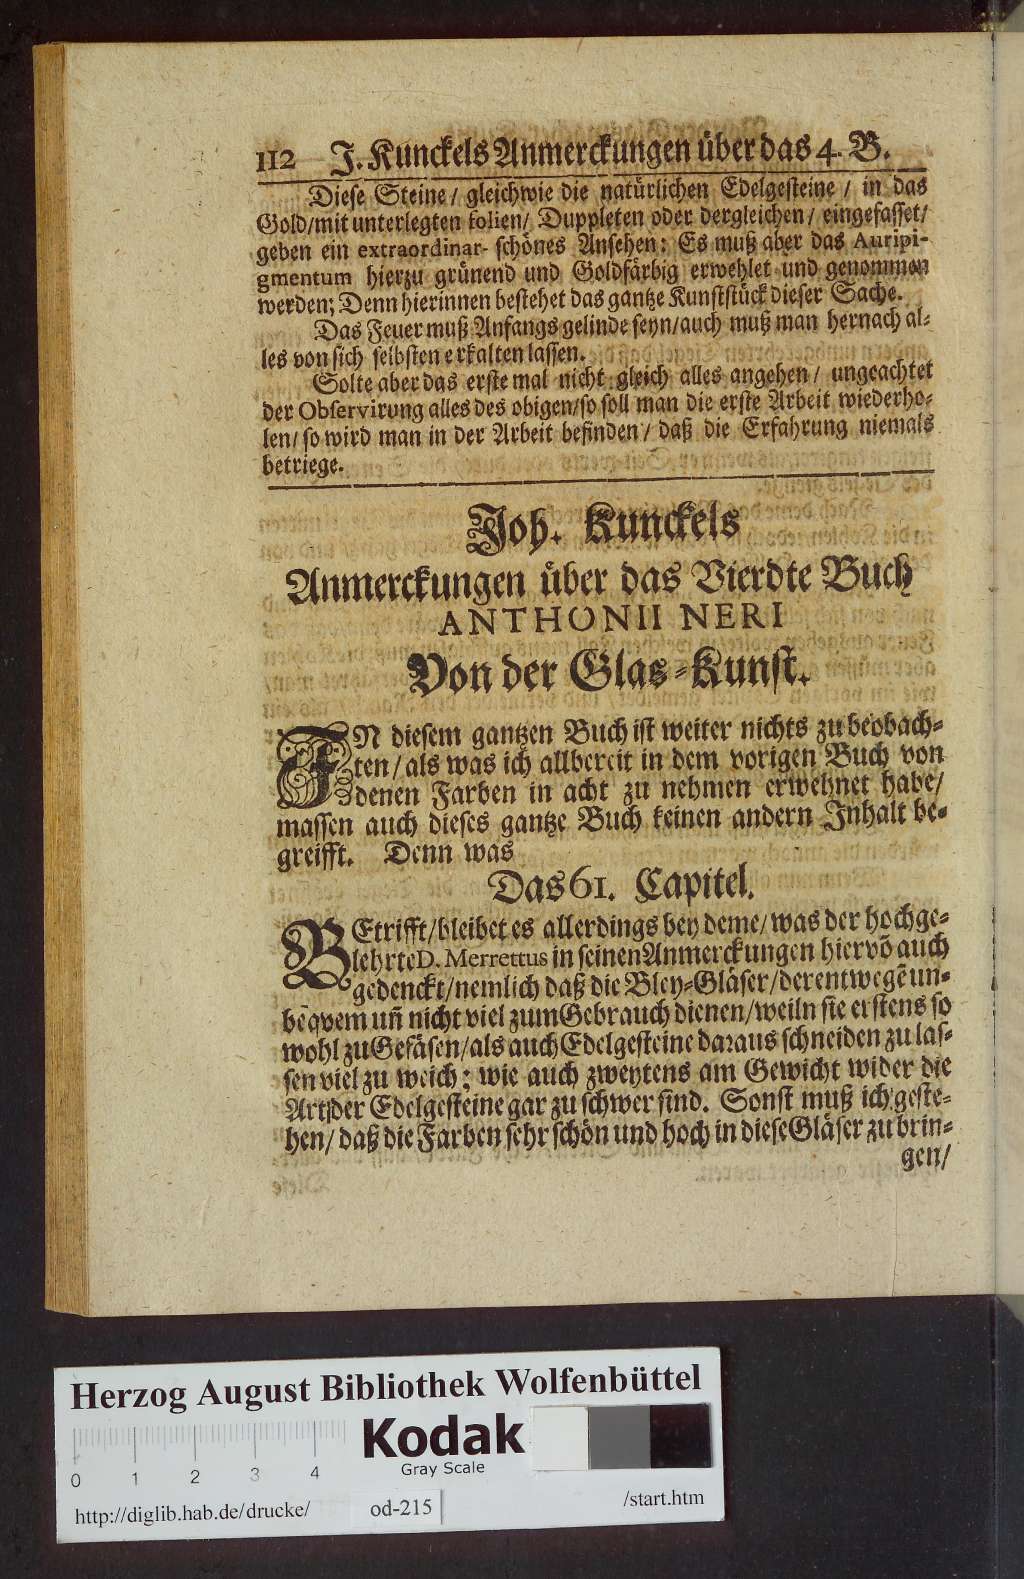 112 J. Kunckels Anmerckungen über das 4. B.
Diese Steine / gleichwie die natürlichen Edelgesteine / in das
Gold/mit unterlegten folien/ Duppleten oder dergleichen/ eingefasset/
geben ein extraordinar- schönes Ansehen: Es muß aber das Auripi-
gmentum hierzu grünend und Goldfärbig erwehlet und genommen
werden; Denn hierinnen bestehet das gantze Kunststück dieser Sache.
Das Feuer muß Anfangs gelinde seyn/auch muß man hernach al-
les von sich selbsten erkalten lassen.
Solte aber das erste mal nicht gleich alles angehen/ ungeachtet
der Observirung alles des obigen/so soll man die erste Arbeit wiederho-
len/ so wird man in der Arbeit befinden/ daß die Erfahrung niemals
betriege.
Joh. Kunckels
Anmerckungen über das Vierdte Buch
ANTHONII NERI
Von der Glas-Kunst.
IN diesem gantzen Buch ist weiter nichts zu beobach-
ten/als was ich allbereit in dem vorigen Buch von
denen Farben in acht zu nehmen erwehnet habe/
massen auch dieses gantze Buch keinen andern Inhalt be-
greifft. Denn was
Das 61. Capitel.
BEtrifft/bleibet es allerdings bey deme/was der hochge-
lehrte D. Merrettus in seinen Anmerckungen hiervõ auch
gedenckt/nemlich daß die Bley-Gläser/derentwegẽ un-
beqvem uñ nicht viel zum Gebrauch dienen/weiln sie erstens so
wohl zu Gefäsen/als auch Edelgesteine daraus schneiden zu las-
sen viel zu weich; wie auch zweytens am Gewicht wider die
Art der Edelgesteine gar zu schwer sind. Sonst muß ich geste-
hen/ daß die Farben sehr schön und hoch in diese Gläser zu brin-
gen/
Herzog August Bibliothek Wolfenbüttel
Kodak
Gray Scale
0 1 2 3 4
http://diglib.hab.de/drucke/ od-215 /start.htm